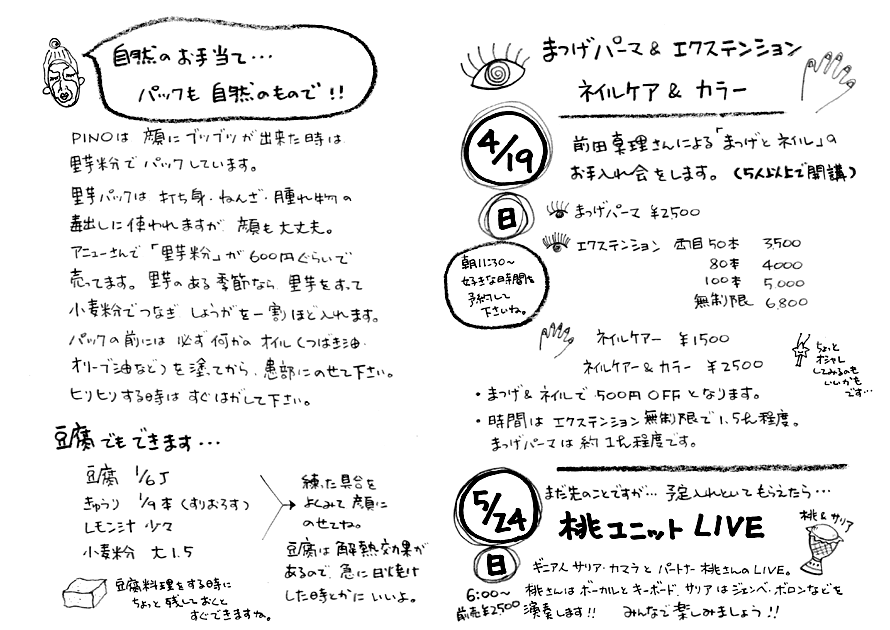 自然のお手当て…
パックも自然のもので!!
PINOは 顔にブツブツが出来た時は
里芋粉でパックしています。
里芋パックは 打ち身・ねんざ・腫れ物の
毒出しに使われますが 顔も大丈夫。
アニューさんで「里芋粉」が600円ぐらいで
売ってます。里芋のある季節なら 里芋をすって
小麦粉でつなぎ しょうがを一割ほど入れます。
パックの前には 必ず何かのオイル(つばき油・
オリーブ油など)を塗ってから、患部にのせて下さい。
ヒリヒリする時は すぐはがして下さい。
豆腐でもできます…
豆腐 1/6丁
きゅうり 1/9本(すりおろす)
レモン汁 少々
小麦粉 大1.5
練った具合を
よくみて 顔に
のせてね。
豆腐は解熱効果が
あるので、急に日焼け
した時とかに いいよ。
豆腐料理をする時に
ちょっと残しておくと
すぐできますね。
まつげパーマ & エクステンション
ネイルケア & カラー
4/19
日
前田真理さんによる「まつげとネイル」の
お手入れ会をします。(5人以上で開講)
朝11:30〜
好きな時間を
予約して
下さいね。
まつげパーマ ¥2500
エクステンション 両目50本 3500
80本 4000
100本 5,000
無制限 6,800
ネイルケアー ¥1500
ネイルケアー & カラー ¥2500
ちょっと
オシャレ
してみるのも
いいかも
です…
・まつげ & ネイルで 500円OFFとなります。
・時間は エクステンション無制限で1.5h程度。
まつげパーマは約1h程度です。
5/24
日
まだ先のことですが… 予定入れといてもらえたら…
桃ユニット LIVE
桃 & サリア
ギニア人 サリア・カマラと パートナー 桃さんのLIVE。
6:00〜
前売¥2500
桃さんはボーカルとキーボード、サリアはジェンベ・ボロンなどを
演奏します!! みんなで楽しみましょう!!